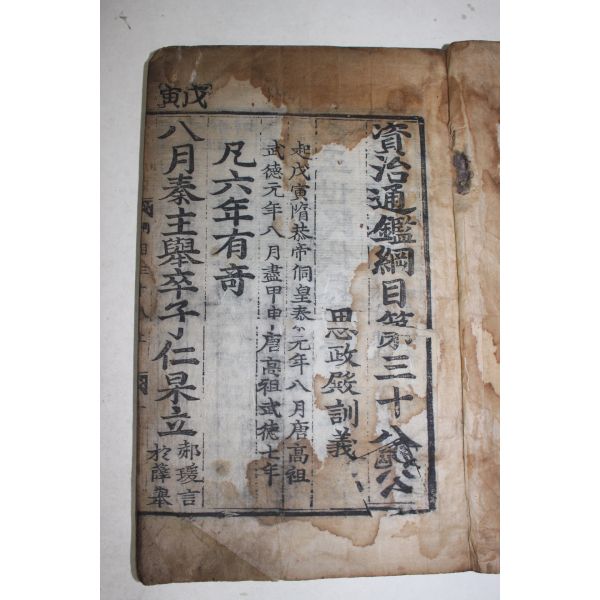 資治通鑑綱目第三十八
思政殿訓義
起戊寅隋恭帝侗皇泰元年八月唐高祖
武德元年八月盡甲申唐高祖武德七年
凡六年有奇
戊寅
八月秦主舉卒子仁杲立
郝瑗言
於薛舉